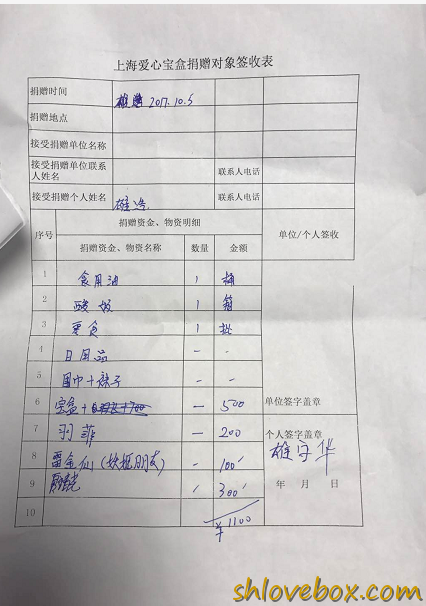 上海爱心宝盒捐赠对象签收表
捐赠时间 2017.10.5
捐赠地点
接受捐赠单位名称
接受捐赠单位联系人姓名 联系人电话
接受捐赠个人姓名 联系人电话
序号 捐赠资金、物资明细 单位/个人签收
捐赠资金、物资名称 数量 金额
1 食用油 1 桶
2 酸奶 1 箱
3 零食 1 批
4 日用品 - -
5 围巾+袜子 - -
6 宝盒+ - 500
单位签字盖章
7 羽菲 - 200
个人签字盖章
8 雷金仙(妖姬朋友) - 100
9 300
年 月 日
10
¥1100
shlovebox.com